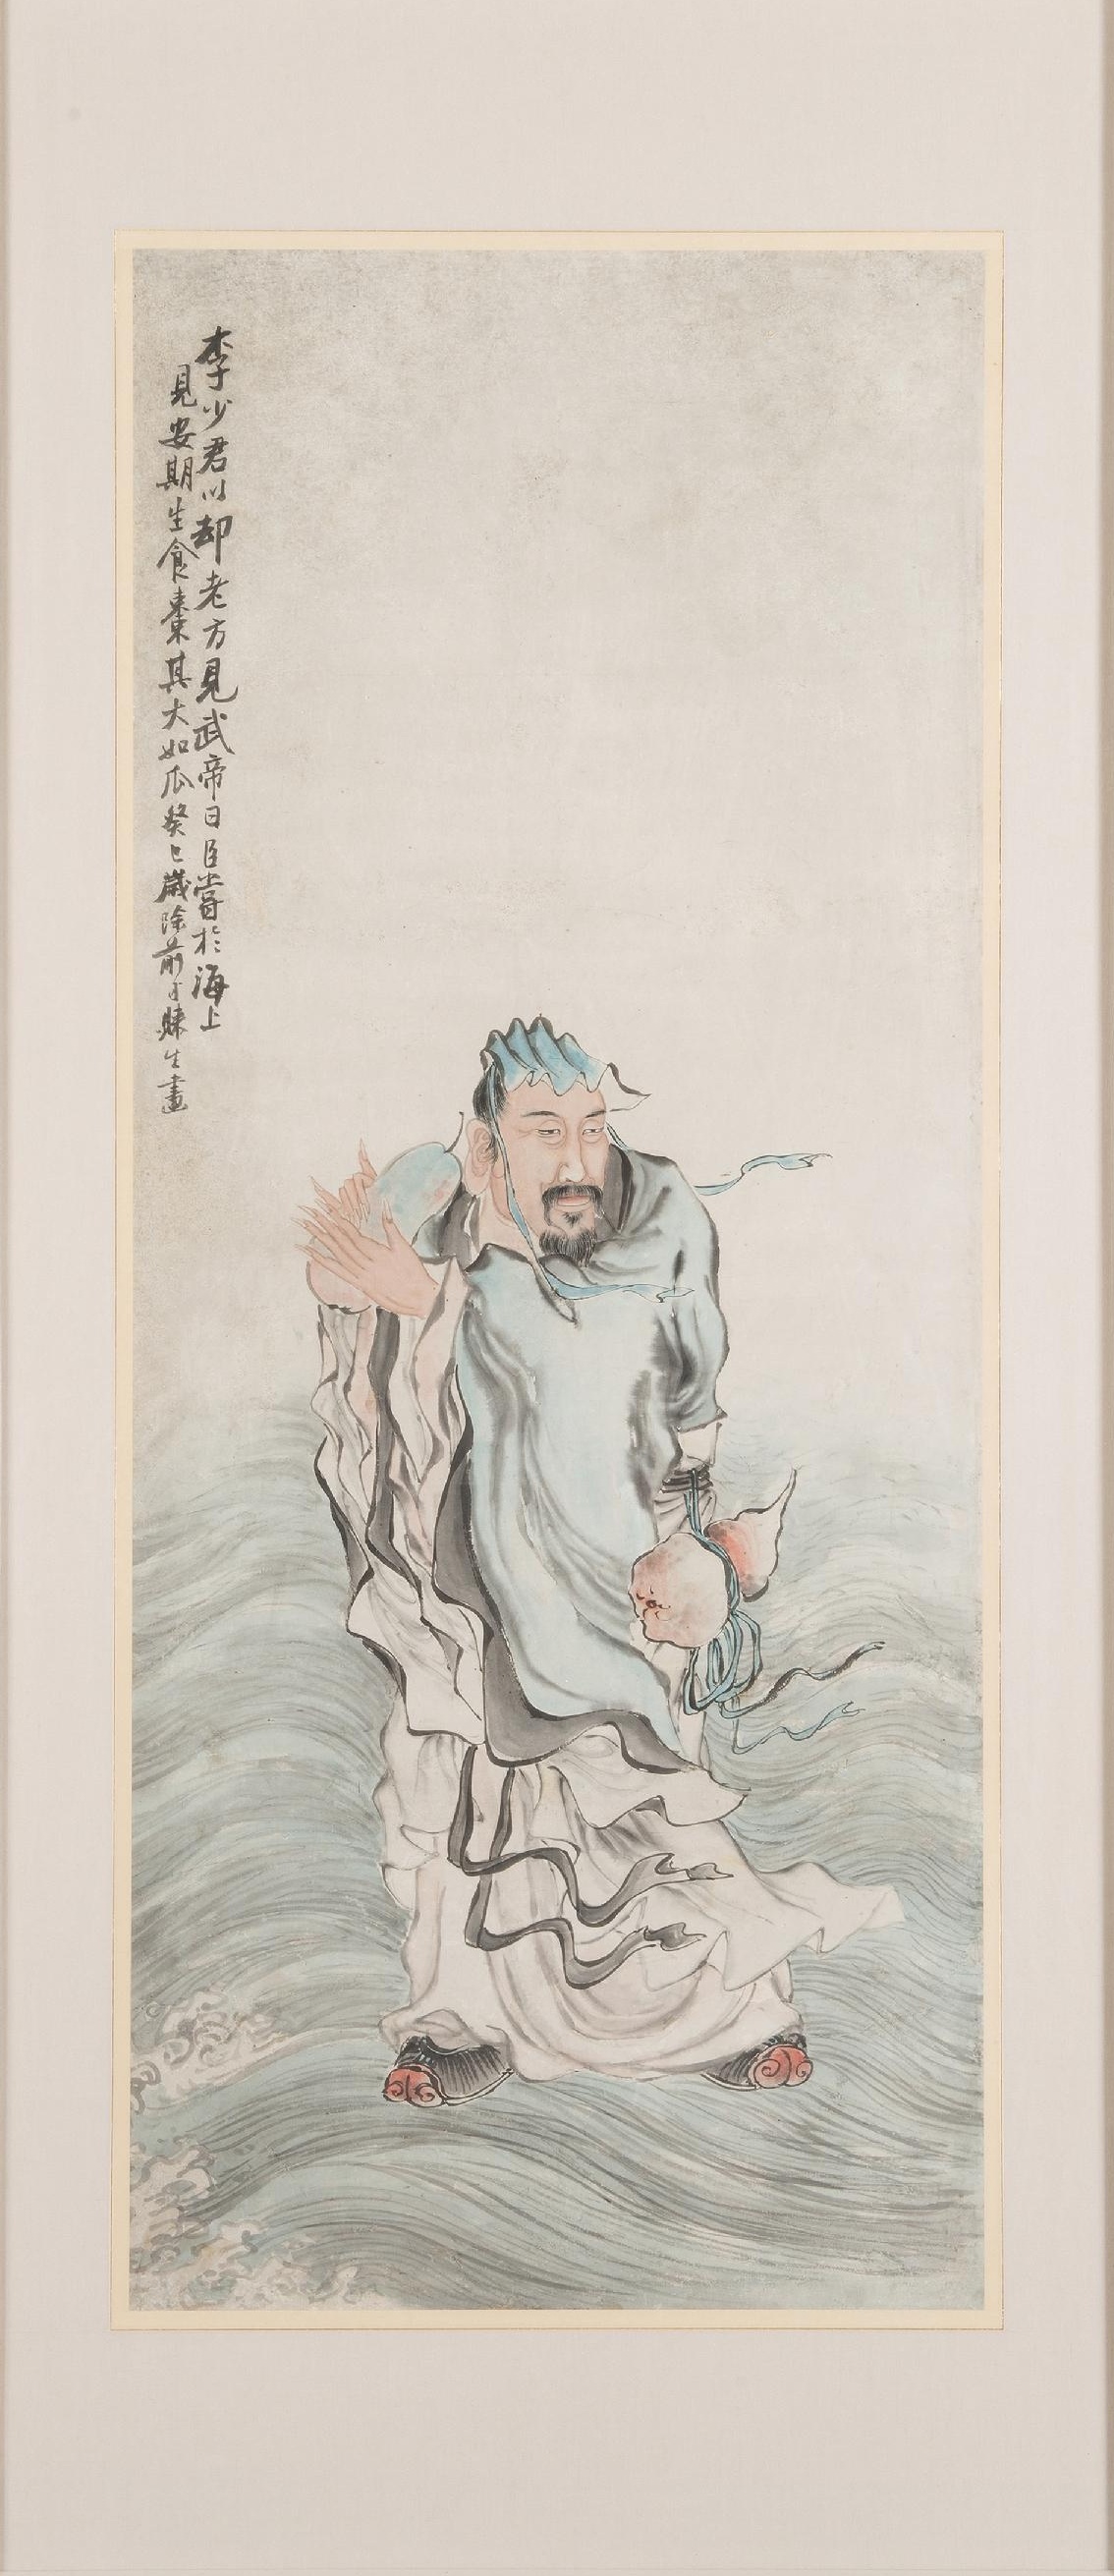 李少君以却老方見武帝曰臣嘗於海上
見安期生食棗其大如瓜癸巳歲除前子棘生畫